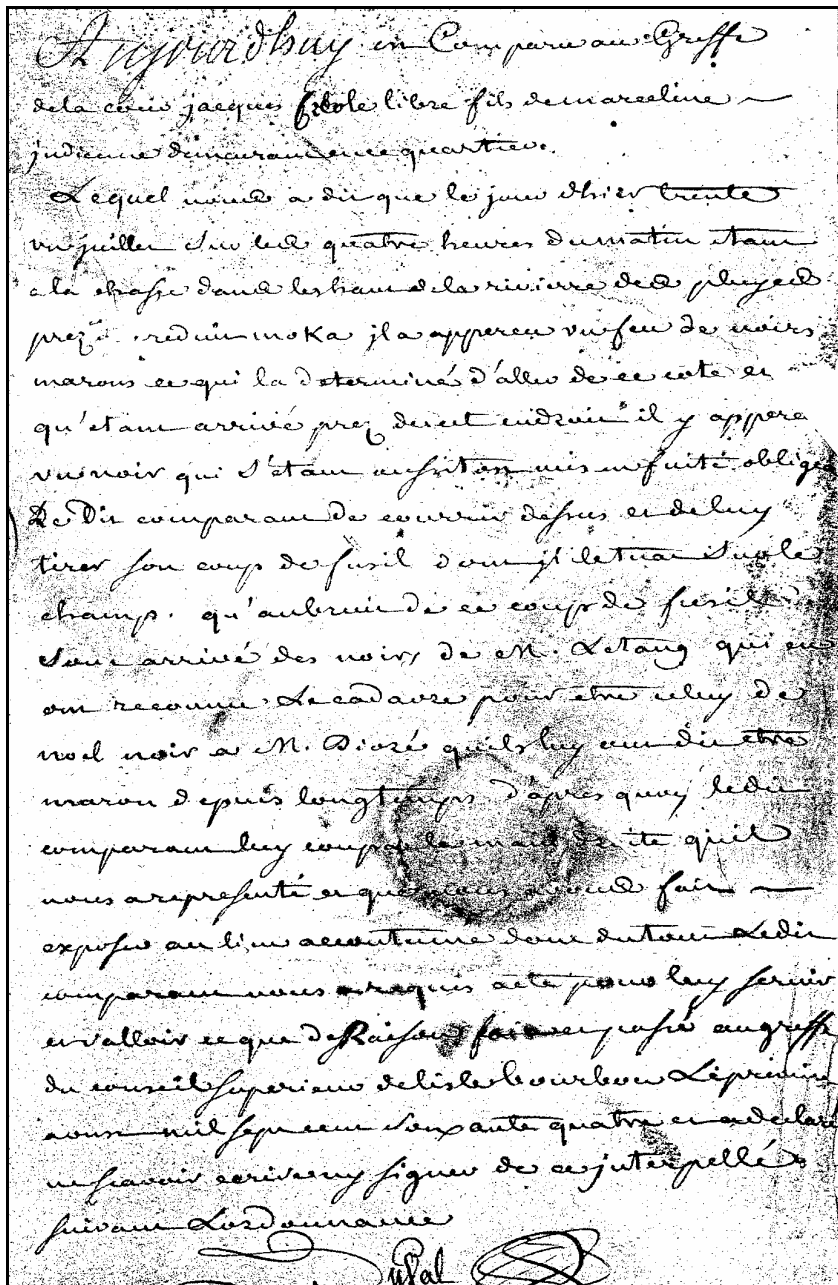 Aujourdhuy est Comparu au Greffe
de la cour jacques Creole libre fils de marceline
jndienne demeurant en ce quartier.
Lequel nous a dit que le jour dhier trente
un juillet sur les quatre heures du matin etant
a la chasse dans les haut de la rivierre des pluyes
prez reduit moka jl a apperçu un feu de noirs
marons ce qui la determiné d'aller de ce coté et
qu'etant arrivé prez du cet endroit il y apperçu
un noir qui s'etant aussitost mis en fuité obligea
Le Dit comparant de courrir dessus et de luy
tirer son coup de fusil dont jl le tua sur le
champ. qu'au bruit de ce coup de fusil
sont arrivé des noirs de M. Letang qui
ont reconnu Le cadavre pour etre celuy de
noel noir a M. quils luy ont dit etre
maron depuis longtemps d'apres quoy ledit
comparant luy coupa la main droite quil
nous a representé et que nous avons fait
exposer au lieu accoutumé dont du tout Ledit
comparant nous a requis acte pour luy servir
et valloir ce que de Raison fait et passé au greffe
du conseil superieur de lisle bourbon Le premier
aoust mil sept cent soixante quatre et a declaré
ne scavoir ecrire ny signer de ce jnterpellé
suivant Lordonnance
Dusal